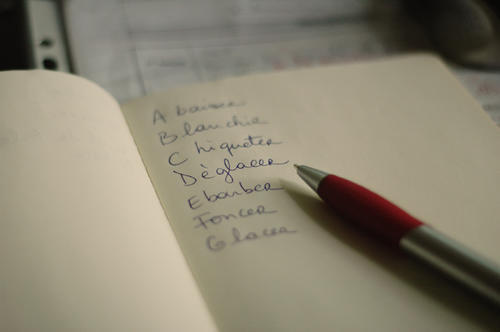 Abaisser
Blanchir
Chiqueter
Déglacer
Ebarber
Foncer
Glacer